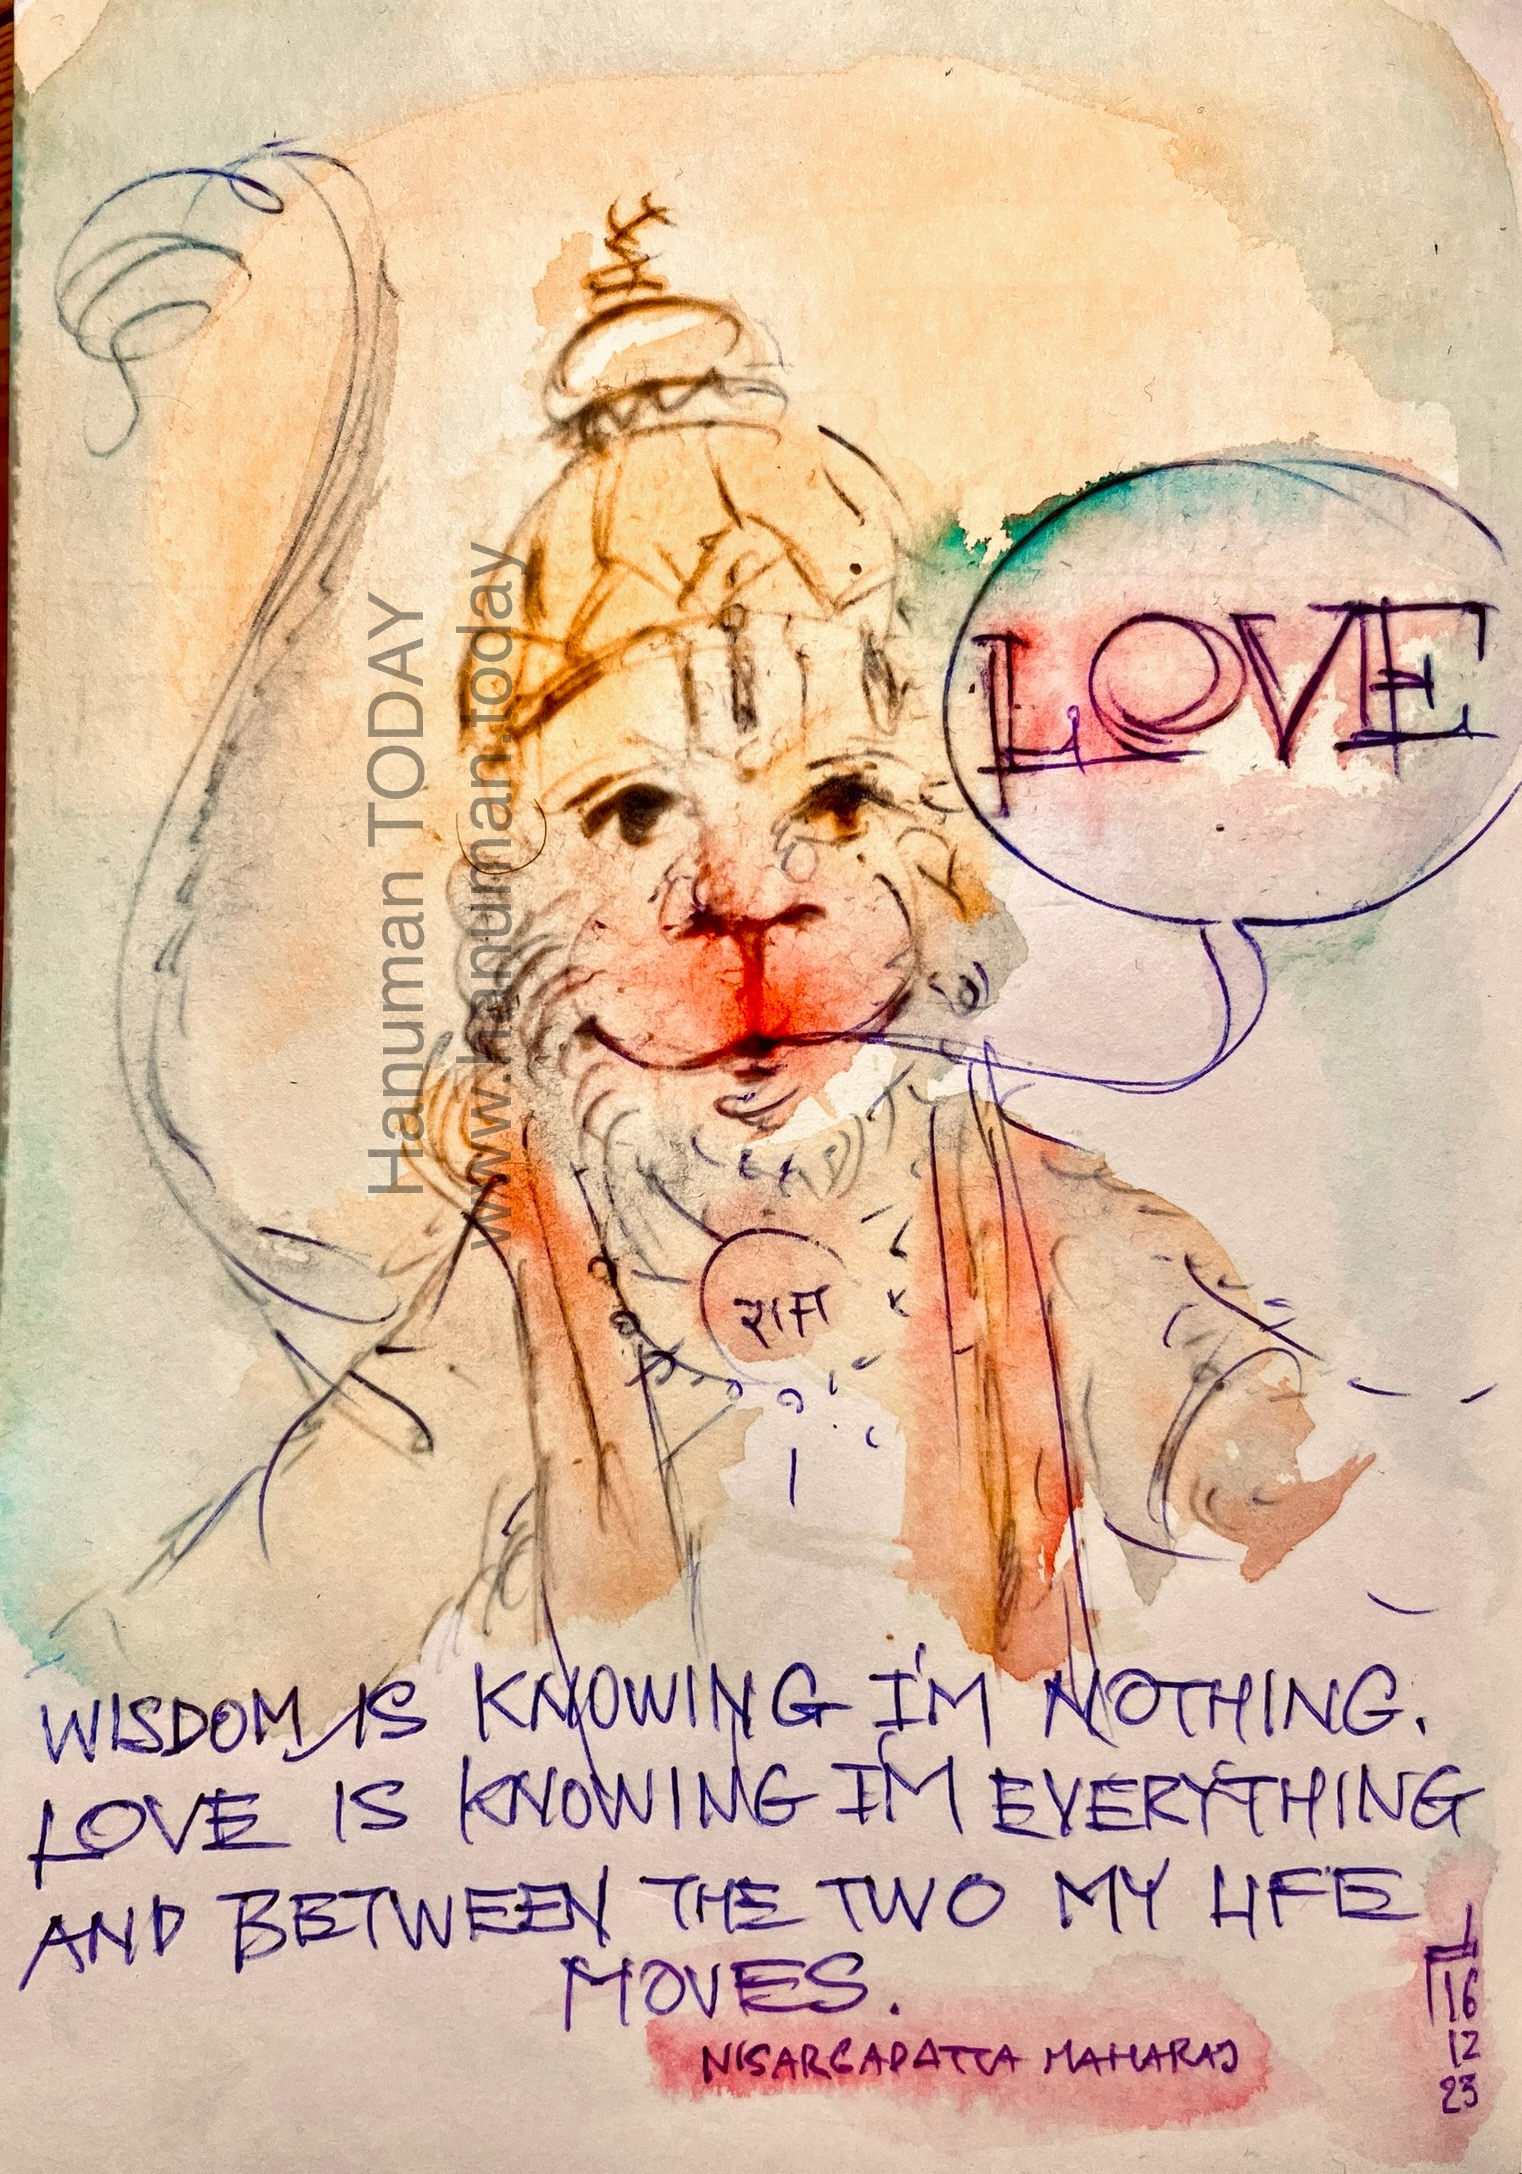 LOVE
Hanuman TODAY
www.hanuman.today
राम
WISDOM IS KNOWING I'M NOTHING.
LOVE IS KNOWING I'M EVERYTHING
AND BETWEEN THE TWO MY LIFE
MOVES.
NISARGADATTA MAHARAJ
16
12
23